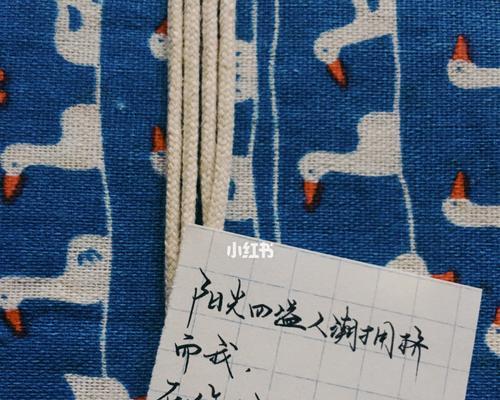 小红书
阳光四溢人潮拥挤
而我.
在你